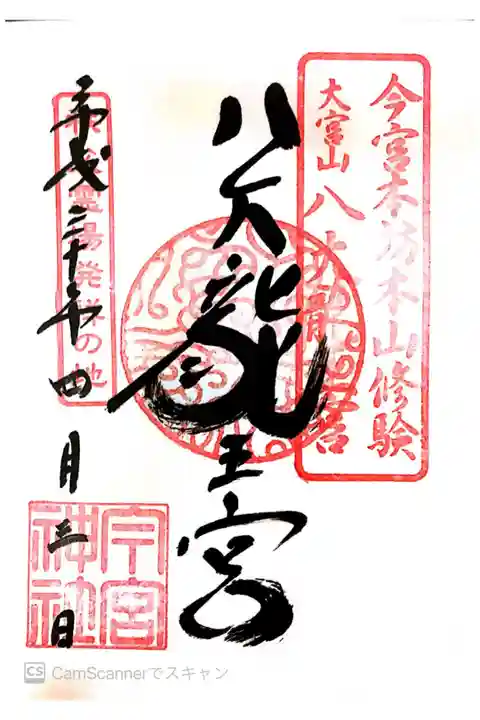 今宮本坊本山修験
大宮山八大龍王宮
八大龍王宮
平成三十年四月三日
霊場発祥の地
今宮神社
CamScannerでスキャン